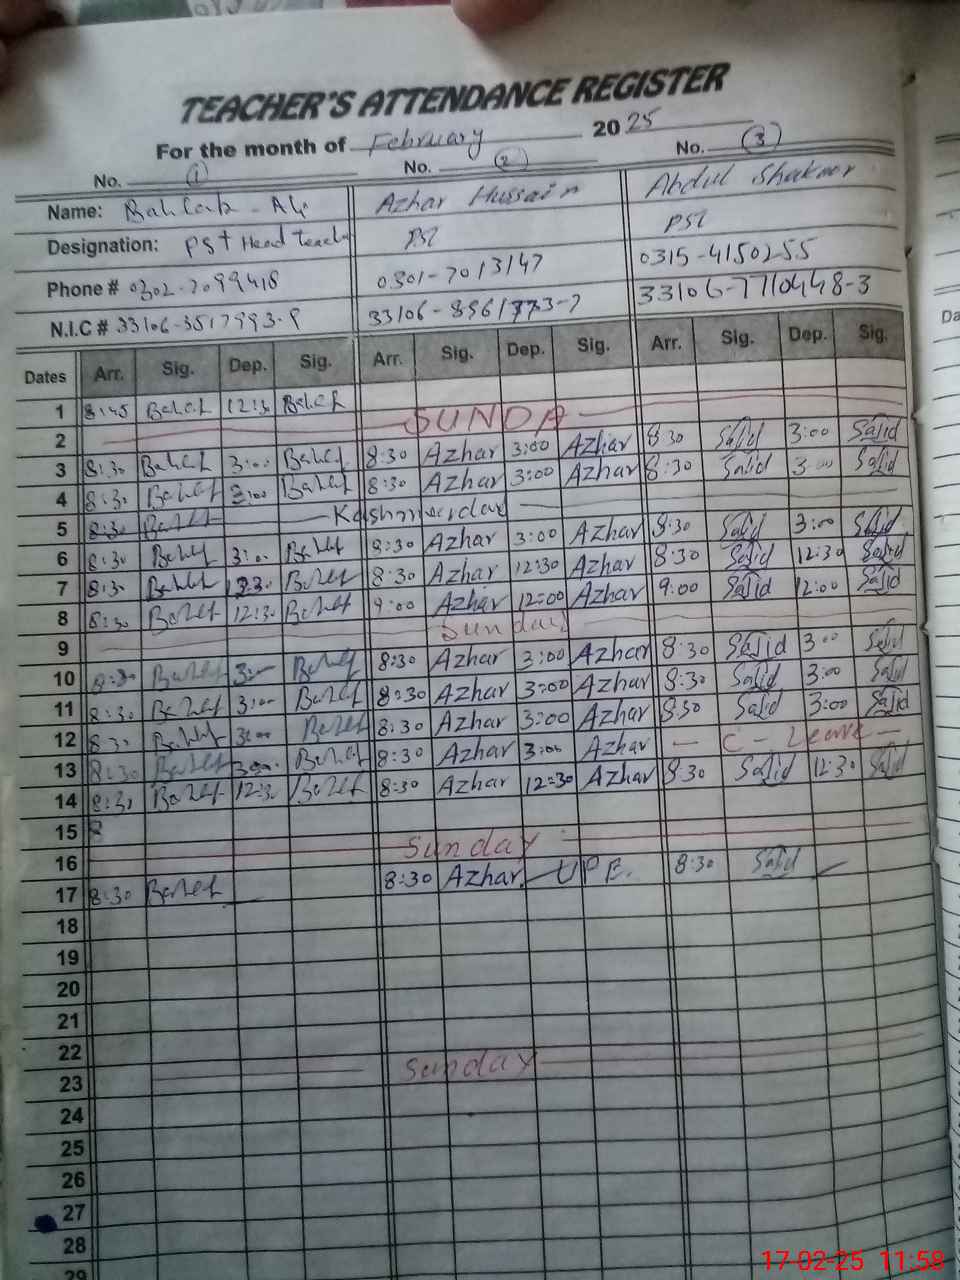 TEACHER'S ATTENDANCE REGISTER
For the month of February 2025
No. (1) No. (2) No. (3)
Name: Ali Azhar Hussain Abdul Shakoor
Designation: PST Head Teach PST PST
Phone # 0302-7099418 0301-7013147 0315-4150255
N.I.C # 33106-3517993-9 33106-8961773-7 33106-7710448-3
Dates Arr. Sig. Dep. Sig. Arr. Sig. Dep. Sig. Arr. Sig. Dep. Sig.
1 8:45 12:30
SUNDA
2
3 8:30 3:00 8:30 Azhar 3:00 Azhar 8:30 Sajid 3:00 Sajid
4 8:30 3:00 8:30 Azhar 3:00 Azhar 8:30 Sajid 3:00 Sajid
5 8:30 Kashmir day
6 8:30 3:00 8:30 Azhar 3:00 Azhar 8:30 Sajid 3:00 Sajid
7 8:30 12:30 8:30 Azhar 12:30 Azhar 8:30 Sajid 12:30 Sajid
8 8:30 12:30 9:00 Azhar 12:00 Azhar 9:00 Sajid 12:00 Sajid
9 Sunday
10 8:30 3:00 8:30 Azhar 3:00 Azhar 8:30 Sajid 3:00 Sajid
11 8:30 3:00 8:30 Azhar 3:00 Azhar 8:30 Sajid 3:00 Sajid
12 8:30 3:00 8:30 Azhar 3:00 Azhar 8:30 Sajid 3:00 Sajid
13 8:30 3:00 8:30 Azhar 3:00 Azhar — C - Leave —
14 8:30 12:30 8:30 Azhar 12:30 Azhar 8:30 Sajid 12:30 Sajid
15 8
16 Sunday
17 8:30 8:30 Azhar UPE. 8:30 Sajid
18
19
20
21
22
23 Sunday
24
25
26
27
28
29
Da
17-02-25 11:58